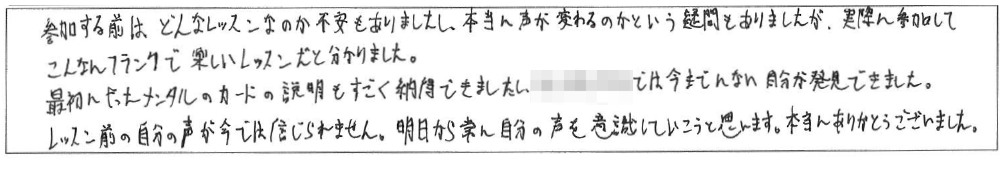 参加する前は どんなレッスンなのか不安もありましたし、本当に声が変わるのかという疑問もありましたが、実際に参加して
こんなにフランクで楽しいレッスンだと分かりました。
最初にやったメンタルのカードの説明もすごく納得できましたし、では今までにない自分が発見できました。
レッスン前の自分の声が今では信じられません。明日から常に自分の声を意識していこうと思います。本当にありがとうございました。